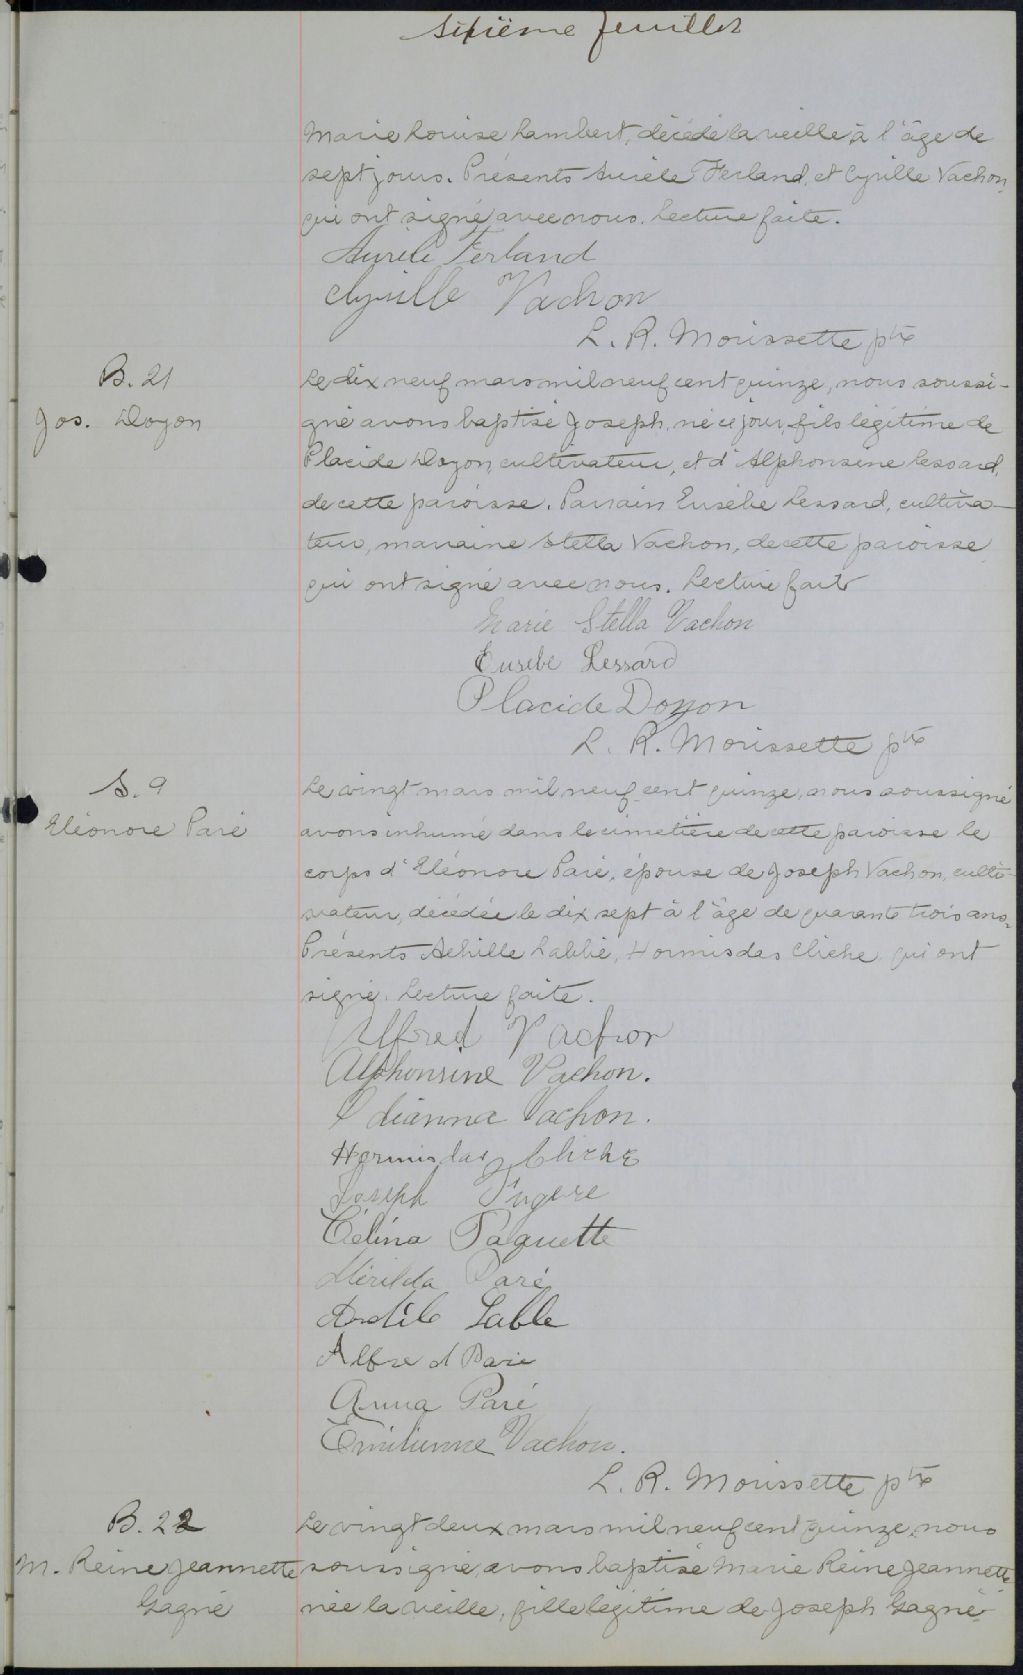 Sixième feuillet
Marie Louise Lambert, décédé la veille, à l'âge de
sept jours. Présents Aurèle Ferland, et Cyrille Vachon,
qui ont signé avec nous. Lecture faite.
Aurèle Ferland
Cyrille Vachon
L. R. Morissette ptre
B. 21
Jos. Doyon
Le dix neuf mars mil neuf cent quinze, nous soussi-
gné avons baptisé Joseph, né ce jour, fils légitime de
Placide Doyon, cultivateur, et d'Alphonsine Lessard,
de cette paroisse. Parrain Eusèbe Lessard, cultiva-
teur, marraine Stella Vachon, de cette paroisse,
qui ont signé avec nous. Lecture faite
Marie Stella Vachon
Eusebe Lessard
Placide Doyon
L. R. Morissette ptre
S. 9
Eléonore Paré
Le vingt mars mil neuf cent quinze, nous soussigné
avons inhumé dans le cimetière de cette paroisse le
corps d'Eléonore Paré, épouse de Joseph Vachon, culti-
vateur, décédée le dix sept à l'âge de quarante trois ans.
Présents Achille Labbé, Hormisdas Cliche qui ont
signé. Lecture faite.
Alfred Vachon
Alphonsine Vachon.
Odianna Vachon.
Hormisdas Cliche
Joseph Fugere
Célina Paquette
Mérilda Paré
Labbe
Alfred Paré
Anna Paré
Emilienne Vachon.
L. R. Morissette ptre
B. 22
M. Reine Jeannette
Gagné
Le vingt deux mars mil neuf cent quinze, nous
soussigné, avons baptisé Marie Reine Jeannette
née la veille, fille légitime de Joseph Gagné